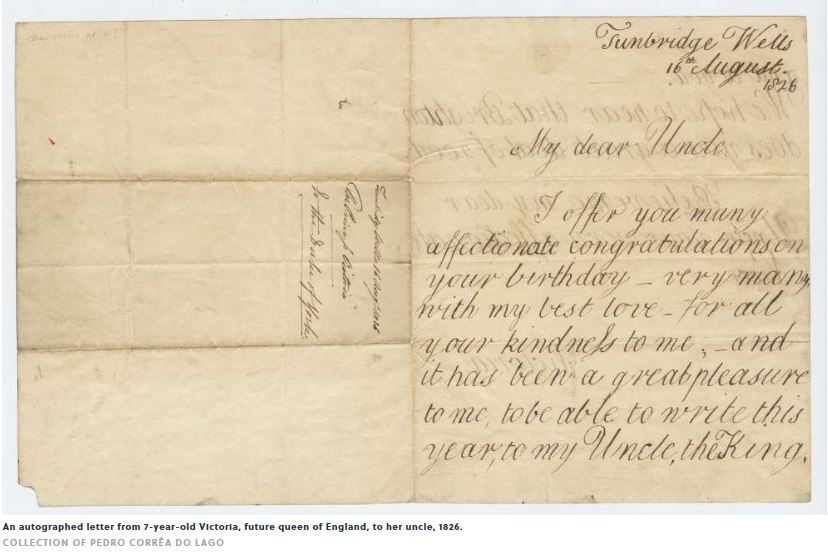 Tunbridge Wells
16th August.
1826
My dear Uncle,
I offer you many
affectionate congratulations on
your birthday – very many,
with my best love – for all
your kindneſs to me; – and
it has been a great pleasure
to me, to be able to write this
year, to my Uncle, the King.
Tunbridge Wells 16 Augt 1826
Princess Victoria
To the Duke of York
An autographed letter from 7-year-old Victoria, future queen of England, to her uncle, 1826.
COLLECTION OF PEDRO CORRÊA DO LAGO